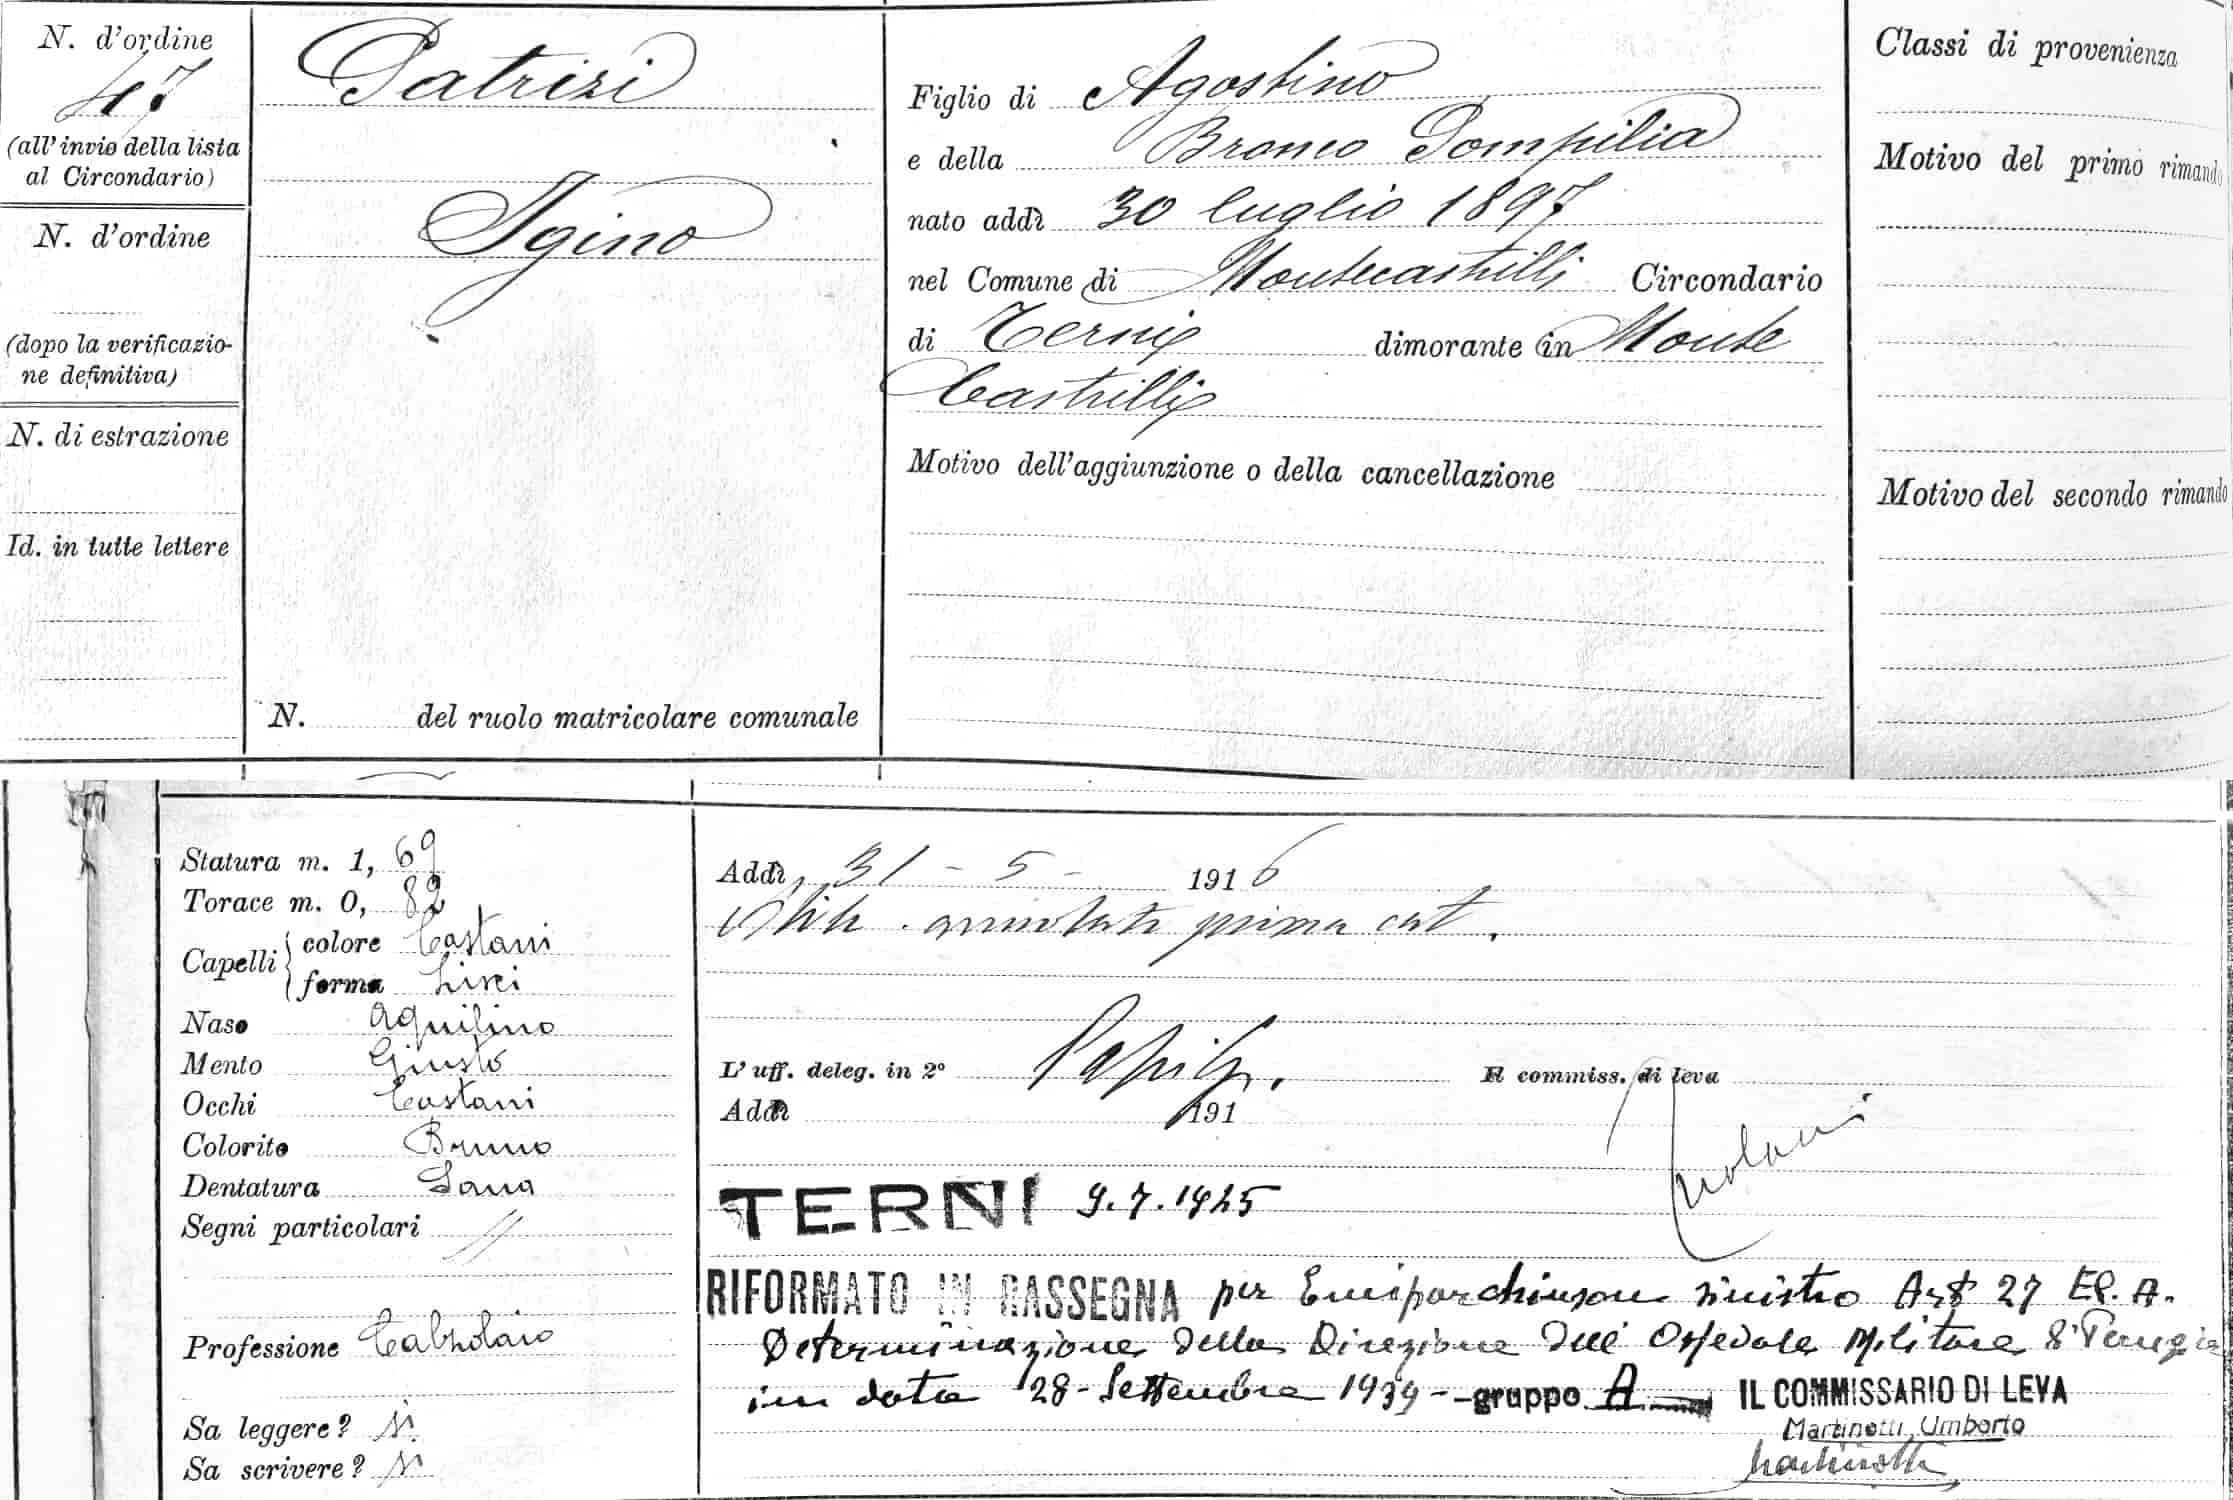 N. d'ordine
47
(all'invio della lista
al Circondario)
N. d'ordine
(dopo la verificazio-
ne definitiva)
N. di estrazione
Id. in tutte lettere
Patrizi
Igino
N. del ruolo matricolare comunale
Figlio di Agostino
e della Bronco Pompilia
nato addì 30 luglio 1897
nel Comune di Montecastrilli Circondario
di Terni dimorante in Monte
Castrilli
Motivo dell'aggiunzione o della cancellazione
Classi di provenienza
Motivo del primo rimando
Motivo del secondo rimando
Statura m. 1, 69
Torace m. 0, 82
Capelli colore Castani
forma Lisci
Naso Aquilino
Mento Giusto
Occhi Castani
Colorito Bruno
Dentatura Sana
Segni particolari //
Professione Calzolaio
Sa leggere? Si
Sa scrivere? Si
Addì 31 - 5 - 1916
prima cat.
L'uff. deleg. in 2º
Il commiss. di leva
Addì 191
TERNI 9.7.1925
RIFORMATO IN RASSEGNA per sinistro Art 27 El. A.
Determinazione della Direzione dell' Ospedale Militare di Perugia
in data 28-Settembre 1939- -gruppo A
IL COMMISSARIO DI LEVA
Martinotti Umberto
Martinotti